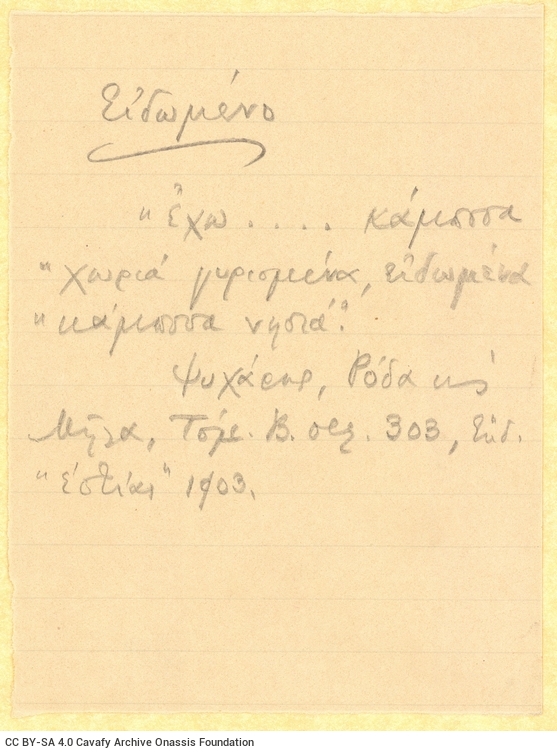 Εἰδωμένο
"Ἔχω . . . . κάμποσα
"χωριά γυρισμένα, εἰδωμένα
"κάμποσα νησιά".
Ψυχάρης, Ρόδα καὶ
Μῆλα, Τόμ. Β. σελ. 303, Ἐκδ.
"Ἑστίας" 1903.
CC BY-SA 4.0 Cavafy Archive Onassis Foundation